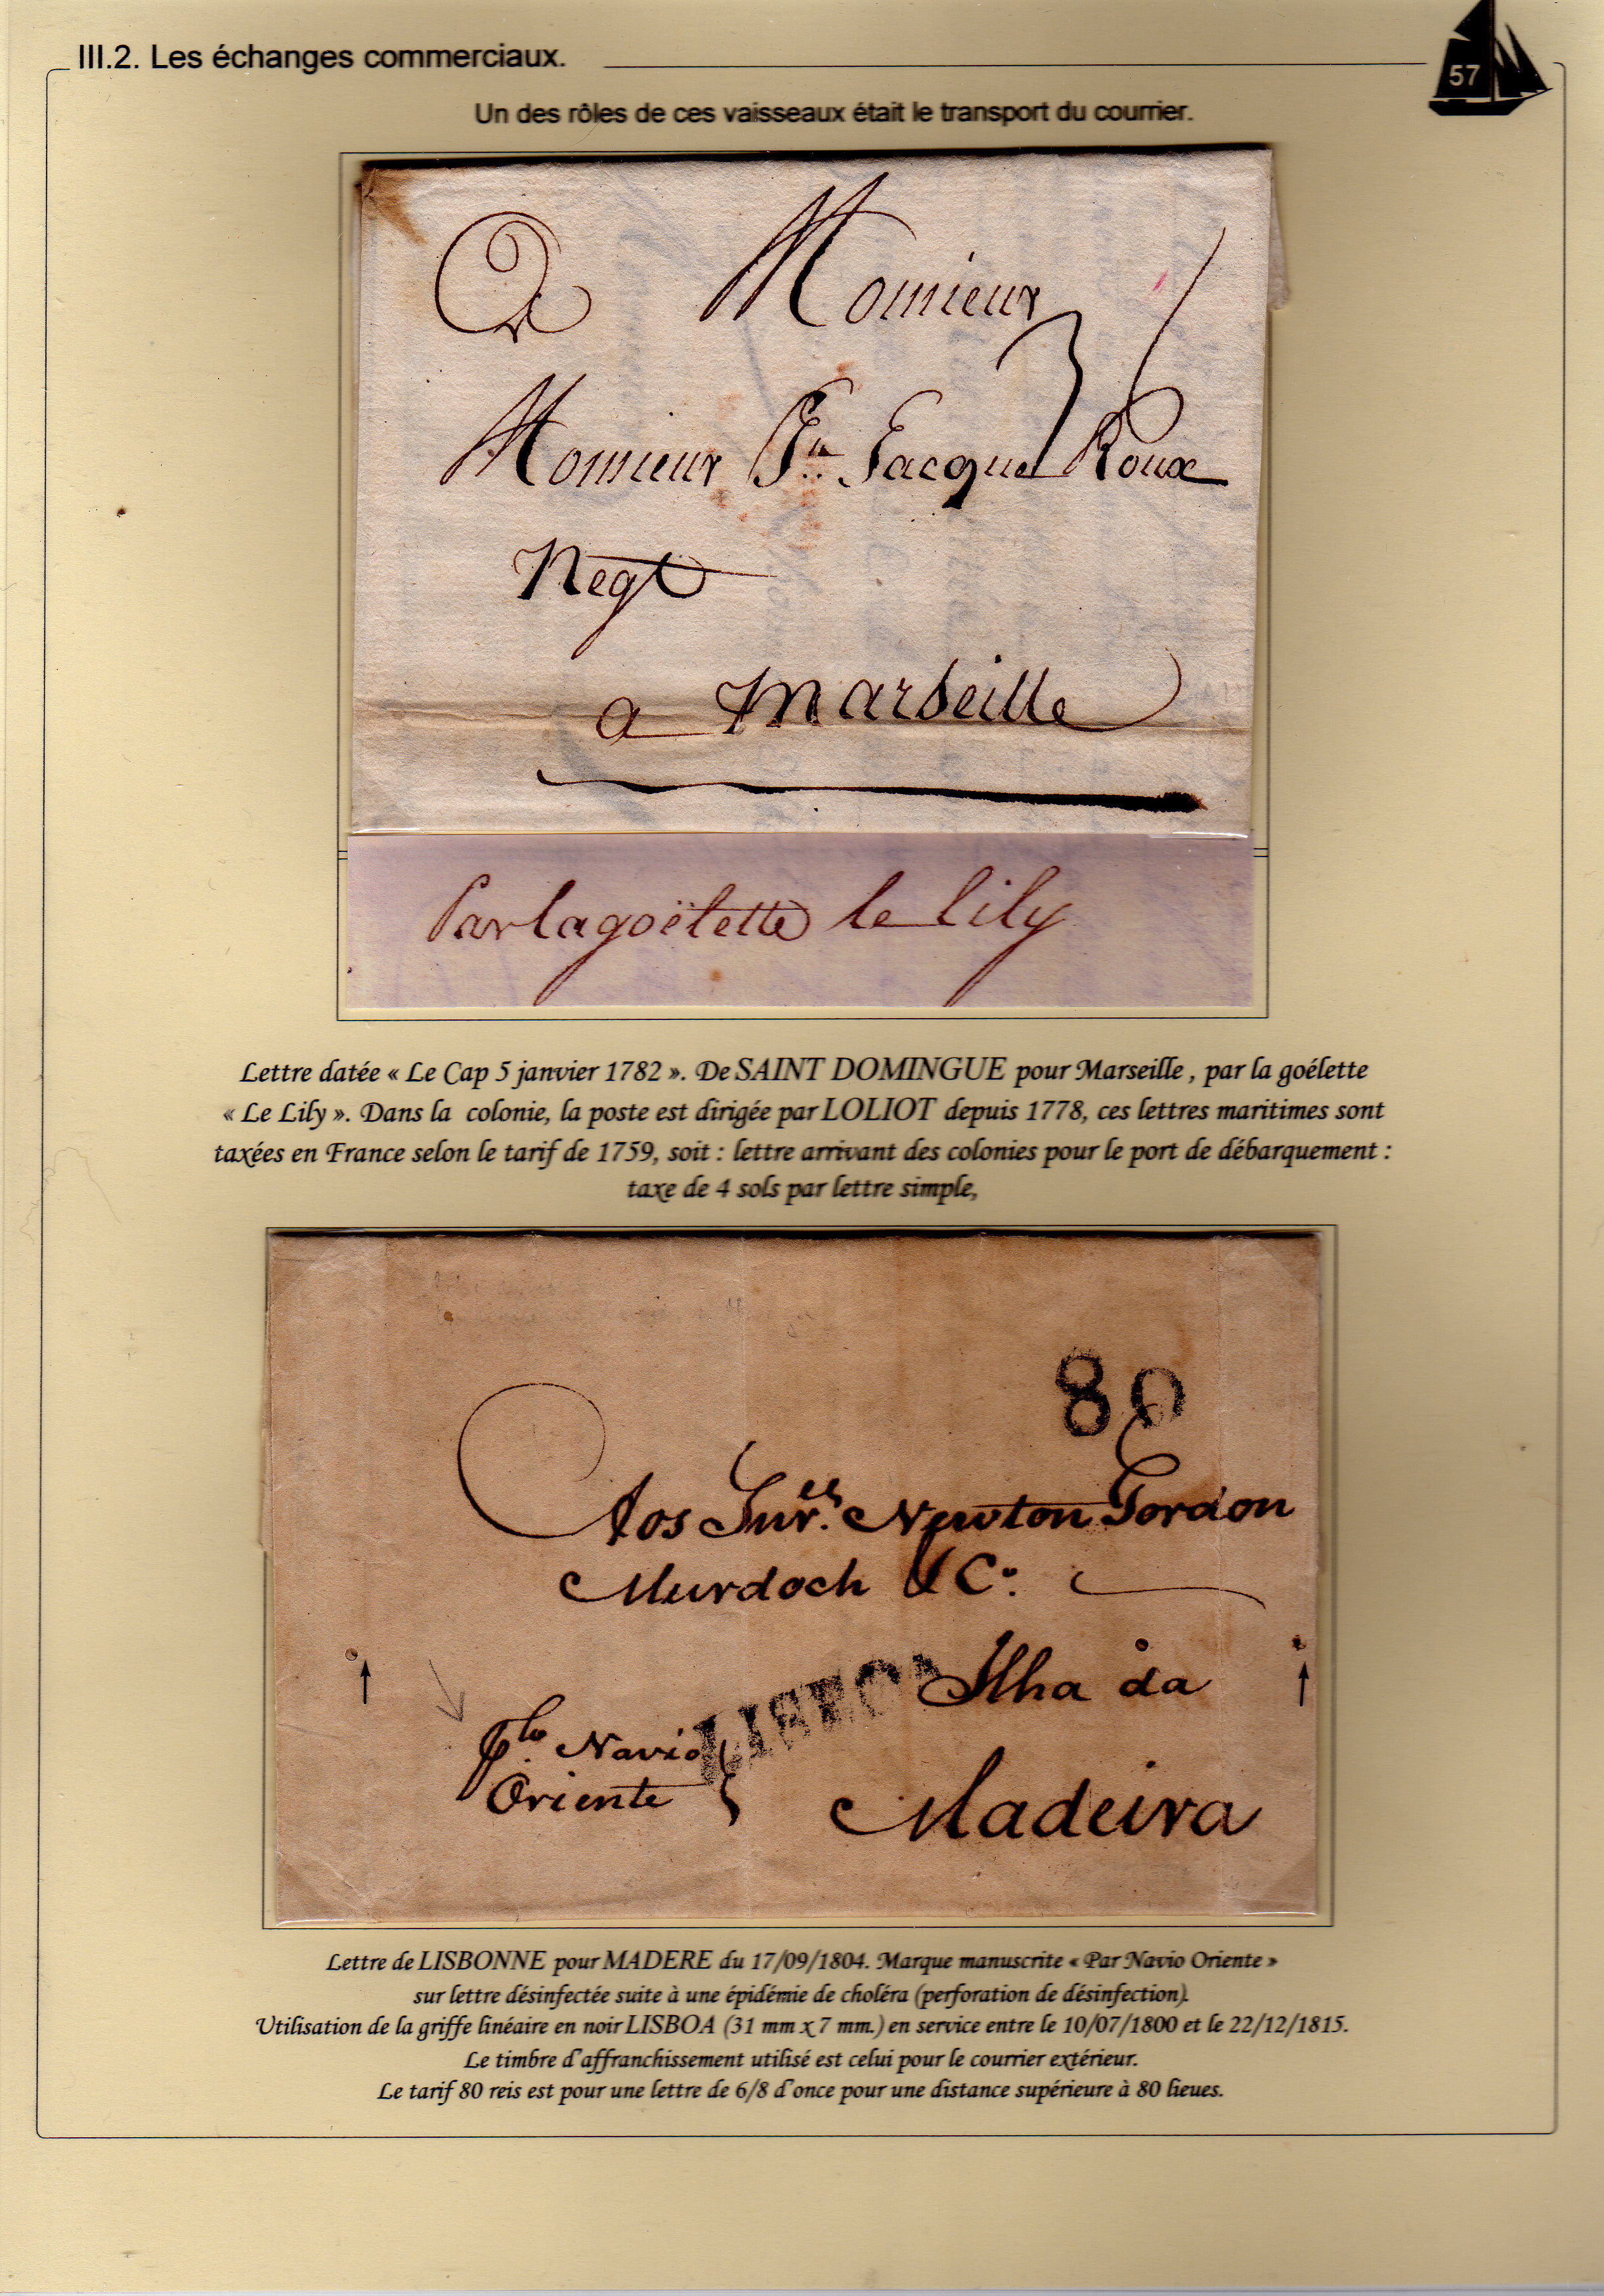 III.2. Les échanges commerciaux.
57
Un des rôles de ces vaisseaux était le transport du courrier.
A Monsieur
36
Monsieur Jn. Jacque Roux
Negt
a Marseille
Par la goëlette le Lily
Lettre datée « Le Cap 5 janvier 1782 ». De SAINT DOMINGUE pour Marseille , par la goélette
« Le Lily ». Dans la colonie, la poste est dirigée par LOLIOT depuis 1778, ces lettres maritimes sont
taxées en France selon le tarif de 1759, soit : lettre arrivant des colonies pour le port de débarquement :
taxe de 4 sols par lettre simple,
80
Aos Snres. Newton Gordon
Murdoch & Co.
LISBOA
Ilha da
plo Navio
Oriente
Madeira
Lettre de LISBONNE pour MADERE du 17/09/1804. Marque manuscrite « Par Navio Oriente »
sur lettre désinfectée suite à une épidémie de choléra (perforation de désinfection).
Utilisation de la griffe linéaire en noir LISBOA (31 mm x 7 mm.) en service entre le 10/07/1800 et le 22/12/1815.
Le timbre d'affranchissement utilisé est celui pour le courrier extérieur.
Le tarif 80 reis est pour une lettre de 6/8 d'once pour une distance supérieure à 80 lieues.